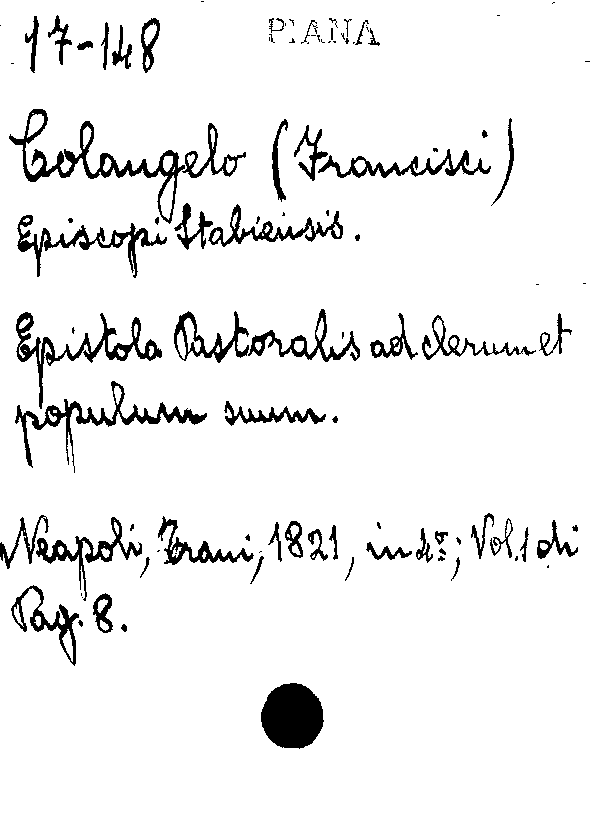 17-148
PIANA
Colangelo (Francisci)
Episcopi Stabiensis.
Epistola Pastoralis ad clerum et
populum suum.
Neapoli, Trani, 1821, in 4º; Vol. 1 di
Pag. 8.